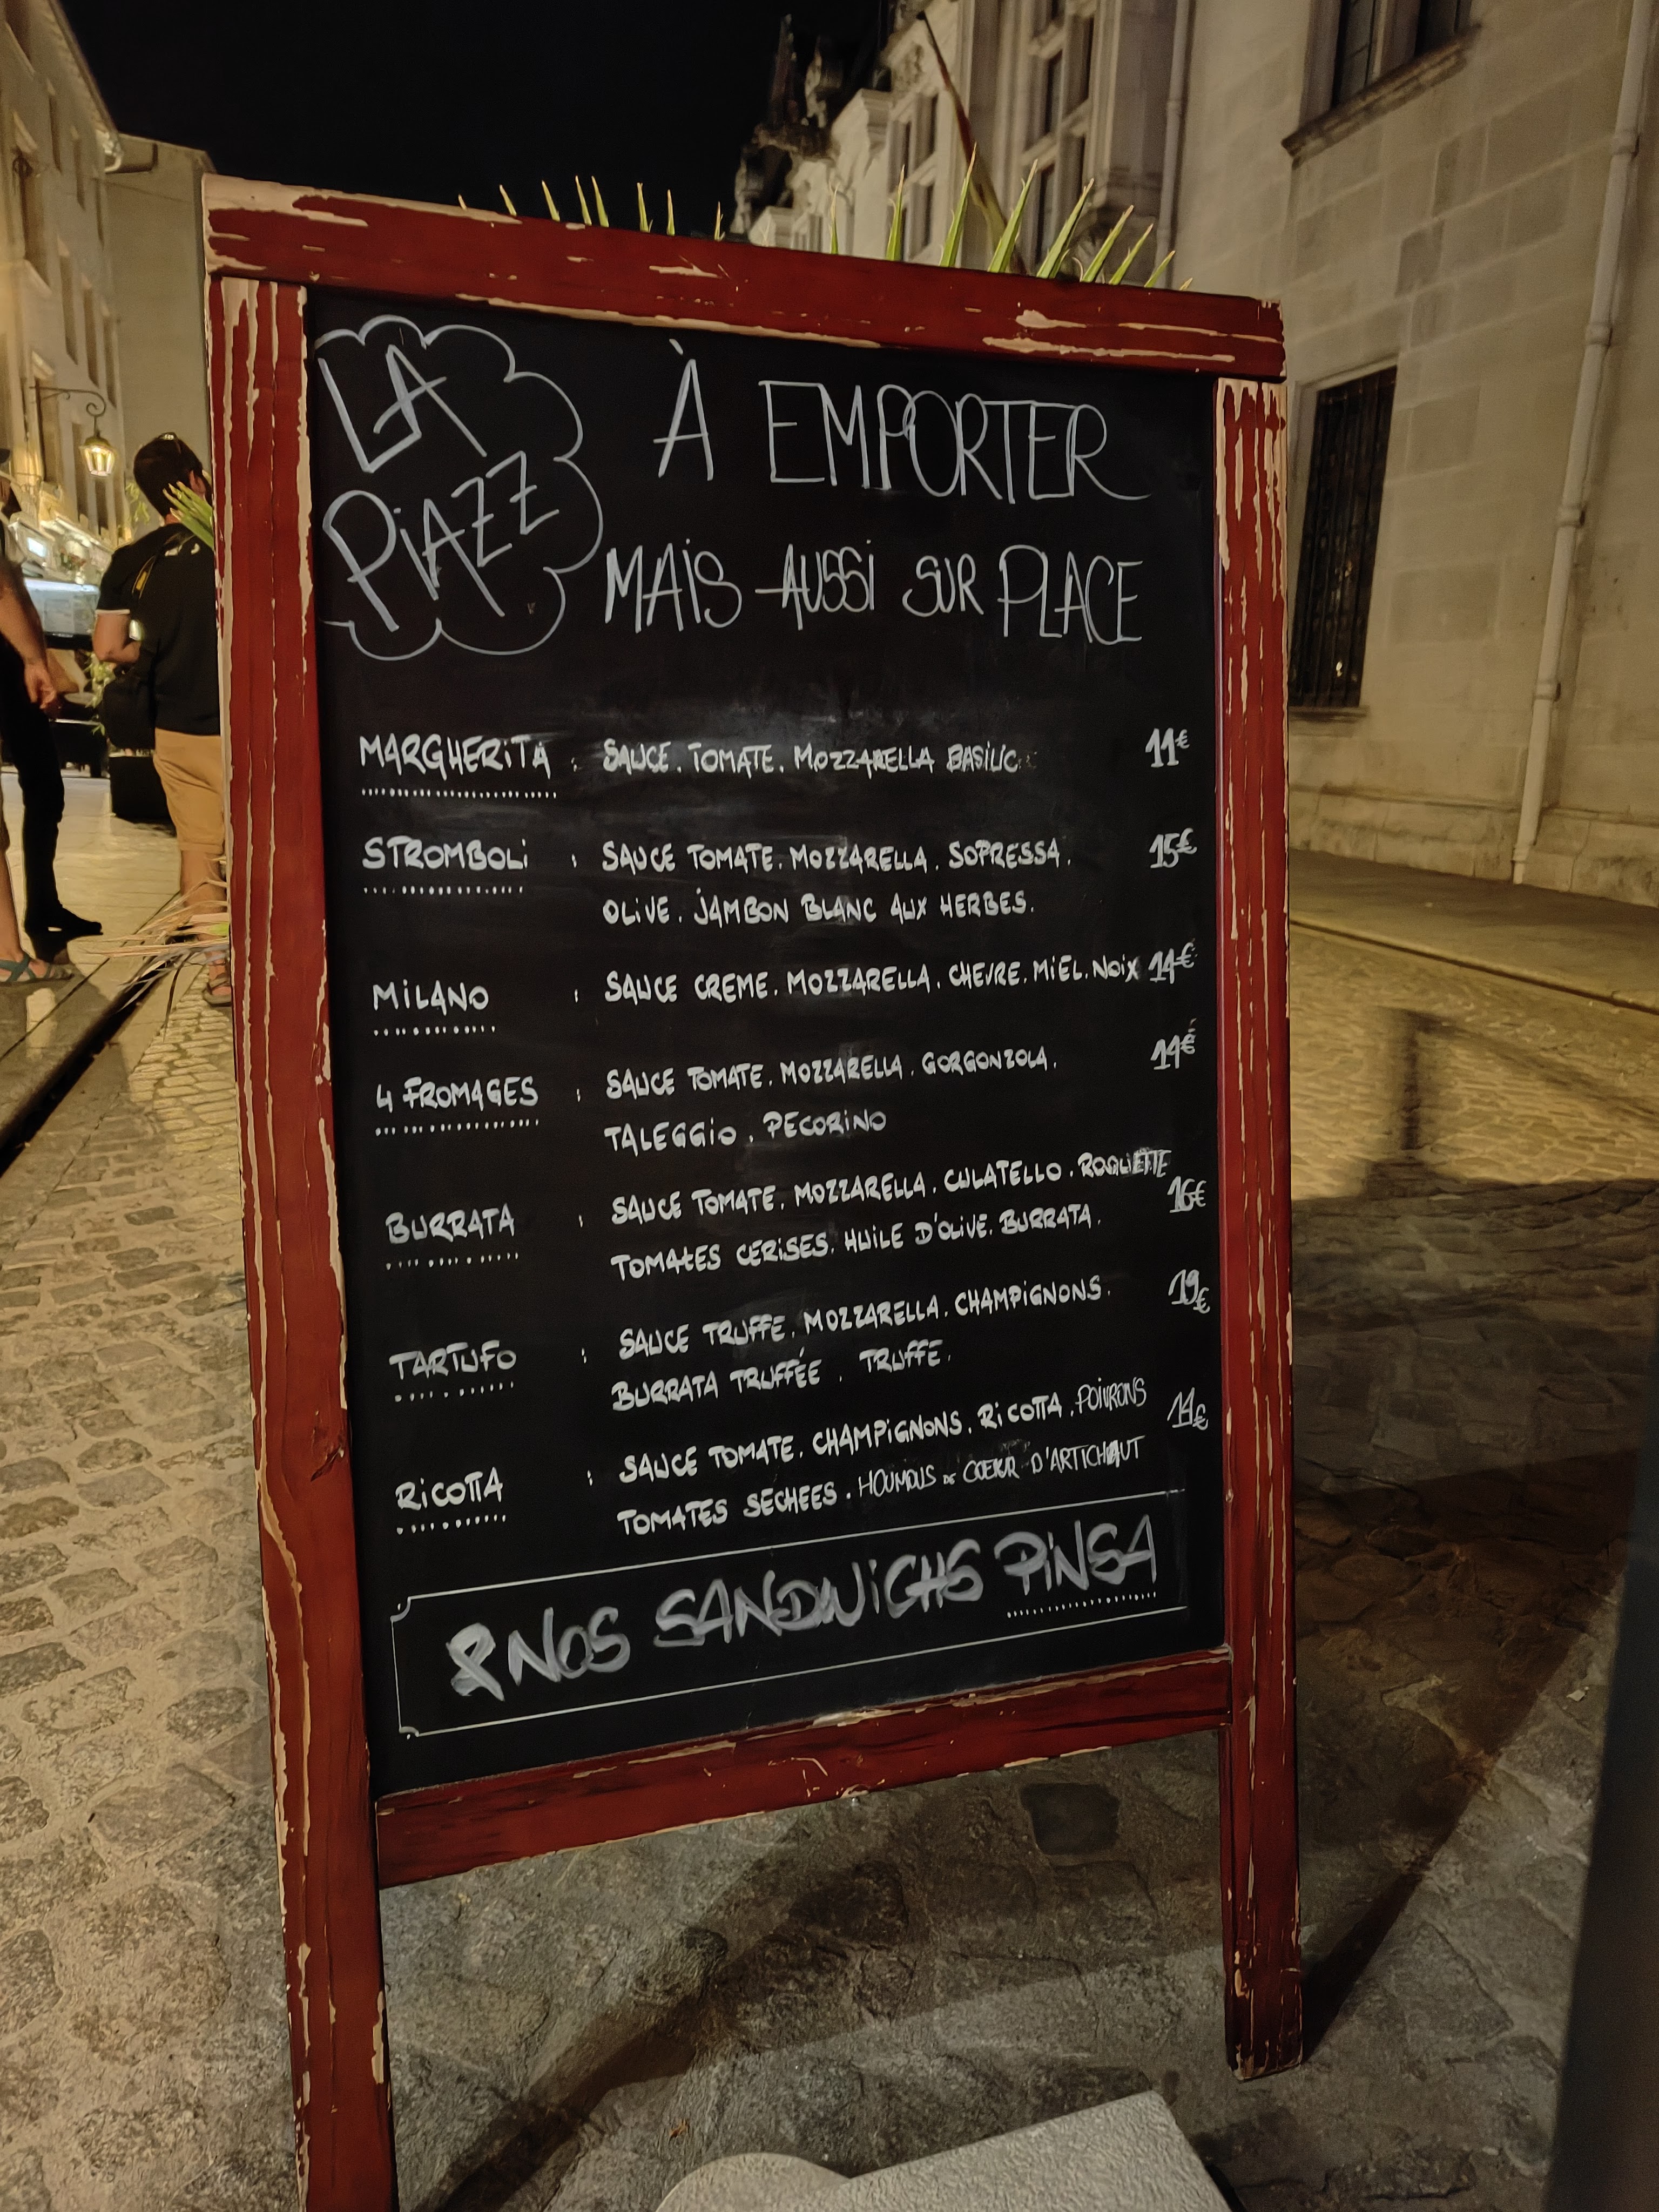 LA
PiAZZ
À EMPORTER
MAiS AUSSi SUR PLACE
MARGHERiTA : SAUCE . TOMATE . MOZZARELLA BASiLiC 11€
STROMBOLi : SAUCE TOMATE . MOZZARELLA . SOPRESSA . 15€
OLiVE . JAMBON BLANC AUX HERBES .
MiLANO : SAUCE CREME . MOZZARELLA . CHEVRE . MiEL . NOiX 14€
4 FROMAGES : SAUCE TOMATE . MOZZARELLA . GORGONZOLA . 14€
TALEGGiO . PECORiNO
BURRATA : SAUCE TOMATE . MOZZARELLA . CULATELLO . ROQUETTE 16€
TOMATES CERiSES . HUiLE D'OLiVE . BURRATA .
TARTUFO : SAUCE TRUFFE . MOZZARELLA . CHAMPiGNONS . 19€
BURRATA TRUFFÉE . TRUFFE .
RiCOTTA : SAUCE TOMATE . CHAMPiGNONS . RiCOTTA . POiVRONS
TOMATES SECHEES . HOUMOUS DE COEUR D'ARTiCHAUT
& NOS SANDWiCHS PiNSA